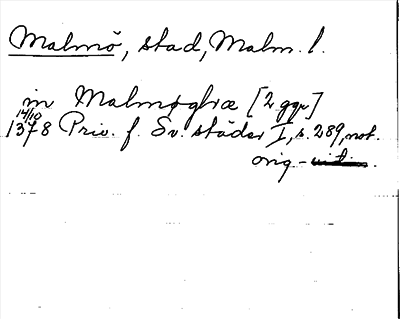 Malmö, stad, Malm. l.
in Malmøghæ [2 ggr]
14/10
1378 Priv. f. Sv. städer I, s. 289, not.
orig.